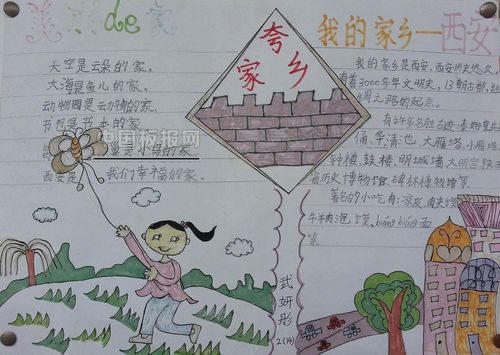 美丽de家
天空是云朵的家。
大海是鱼儿的家。
动物园是动物的家。
书包是书本的家。
是小绿的家。
西安是我们幸福的家。
中国板报网
夸
家
乡
我的家乡—西安
我的家乡是西安。西安历史悠久,
有着3000多年文明史,13朝古都,丝
绸之路的起点。
有许多名胜古迹:秦始皇
俑、华清池、大雁塔、小雁
钟楼、鼓楼、明城墙、大明宫、陕西
省历史博物馆、碑林博物馆等。
著名的小吃有:凉皮、肉夹馍
牛羊肉泡馍、biángbiáng面
等
武妍彤
2(14)